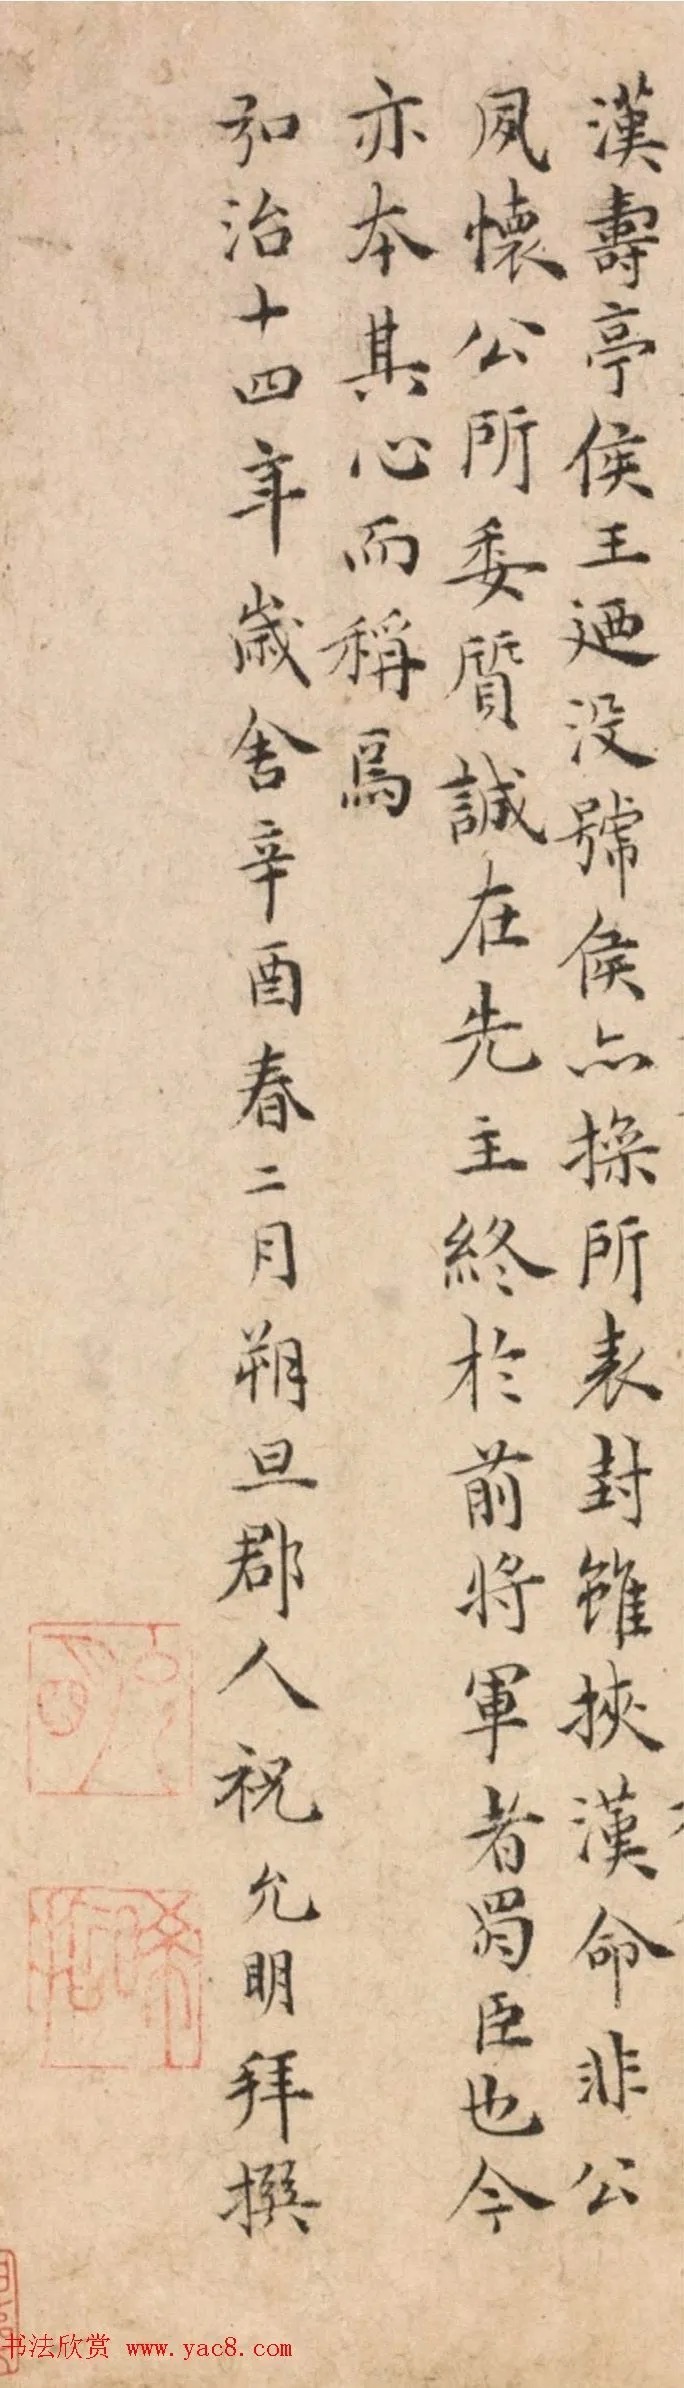 漢壽亭侯王廼没號侯亦操所表封雖挾漢命非公
夙懷公所委質誠在先主終於前將軍者蜀臣也今
亦本其心而稱焉
弘治十四年歲舍辛酉春二月朔旦郡人祝允明拜撰
书法欣赏 www.yac8.com